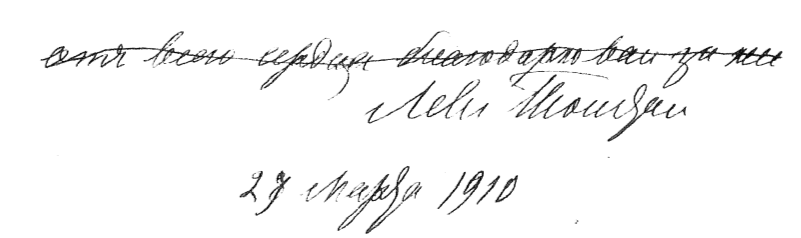 отъ всего сердца благодарю вас за
Левъ Толстой
27 Марта 1910